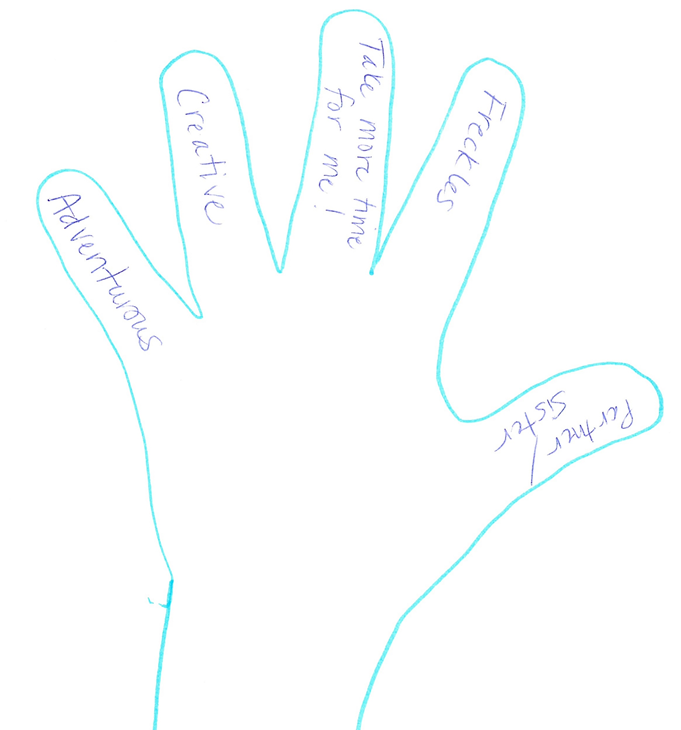 Adventurous
Creative
Take more time
for me!
Freckles
Partner/
Sister